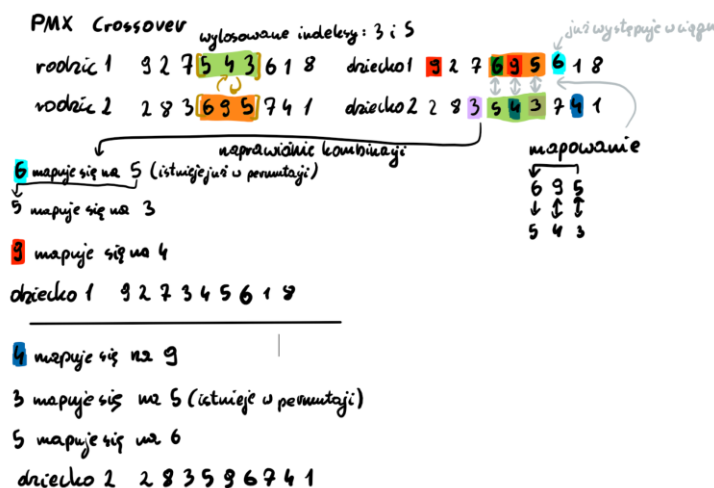 PMX Crossover
wylosowane indeksy: 3 i 5
już występuje w ciągu
rodzic 1 9 2 7 5 4 3 6 1 8
dziecko 1 9 2 7 6 9 5 6 1 8
rodzic 2 2 8 3 6 9 5 7 4 1
dziecko 2 2 8 3 5 4 3 7 4 1
naprawianie kombinacji
mapowanie
6 9 5
5 4 3
6 mapuje się na 5 (istnieje już w permutacji)
5 mapuje się na 3
9 mapuje się na 4
dziecko 1 9 2 7 3 4 5 6 1 8
4 mapuje się na 9
3 mapuje się na 5 (istnieje w permutacji)
5 mapuje się na 6
dziecko 2 2 8 3 5 9 6 7 4 1